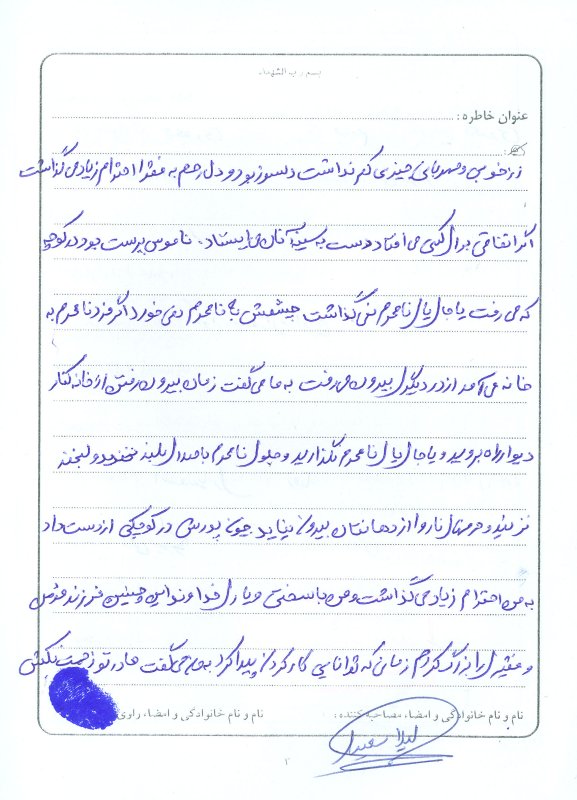 بسم رب الشهداء
عنوان خاطره:
در خوبی و مهربانی چیزی کم نداشت دلسوز بود و دل رحم به فقرا احترام زیاد می گذاشت
اگر اتفاقی برای کسی می افتاد دست به سینه آنان می ایستاد. ناموس پرست بود در کوچه
که می رفت پا جای پای نامحرم نمی گذاشت چشمش به نامحرم نمی خورد اگر فرد نامحرم به
خانه می آمد از در دیگری بیرون می رفت به ما می گفت زمان بیرون رفتن از خانه کنار
دیوار راه بروید و پا جای پای نامحرم نگذارید و جلوی نامحرم با صدای بلند نخندد و لبخند
نزنید و حرفهای ناروا از دهانتان بیرون نیاید چون پدرش در کوچکی از دست داد
به من احترام زیاد می گذاشت و من با سختی و یاری خداوند این چنین فرزند
و را بزرگ کردم زمانی که توانایی کار کردن پیدا کرد به من می گفت مادر تو زحمت نکش
نام و نام خانوادگی و امضاء مصاحبه کننده: نام و نام خانوادگی و امضاء، راوی
لیلا سعیدی
۲